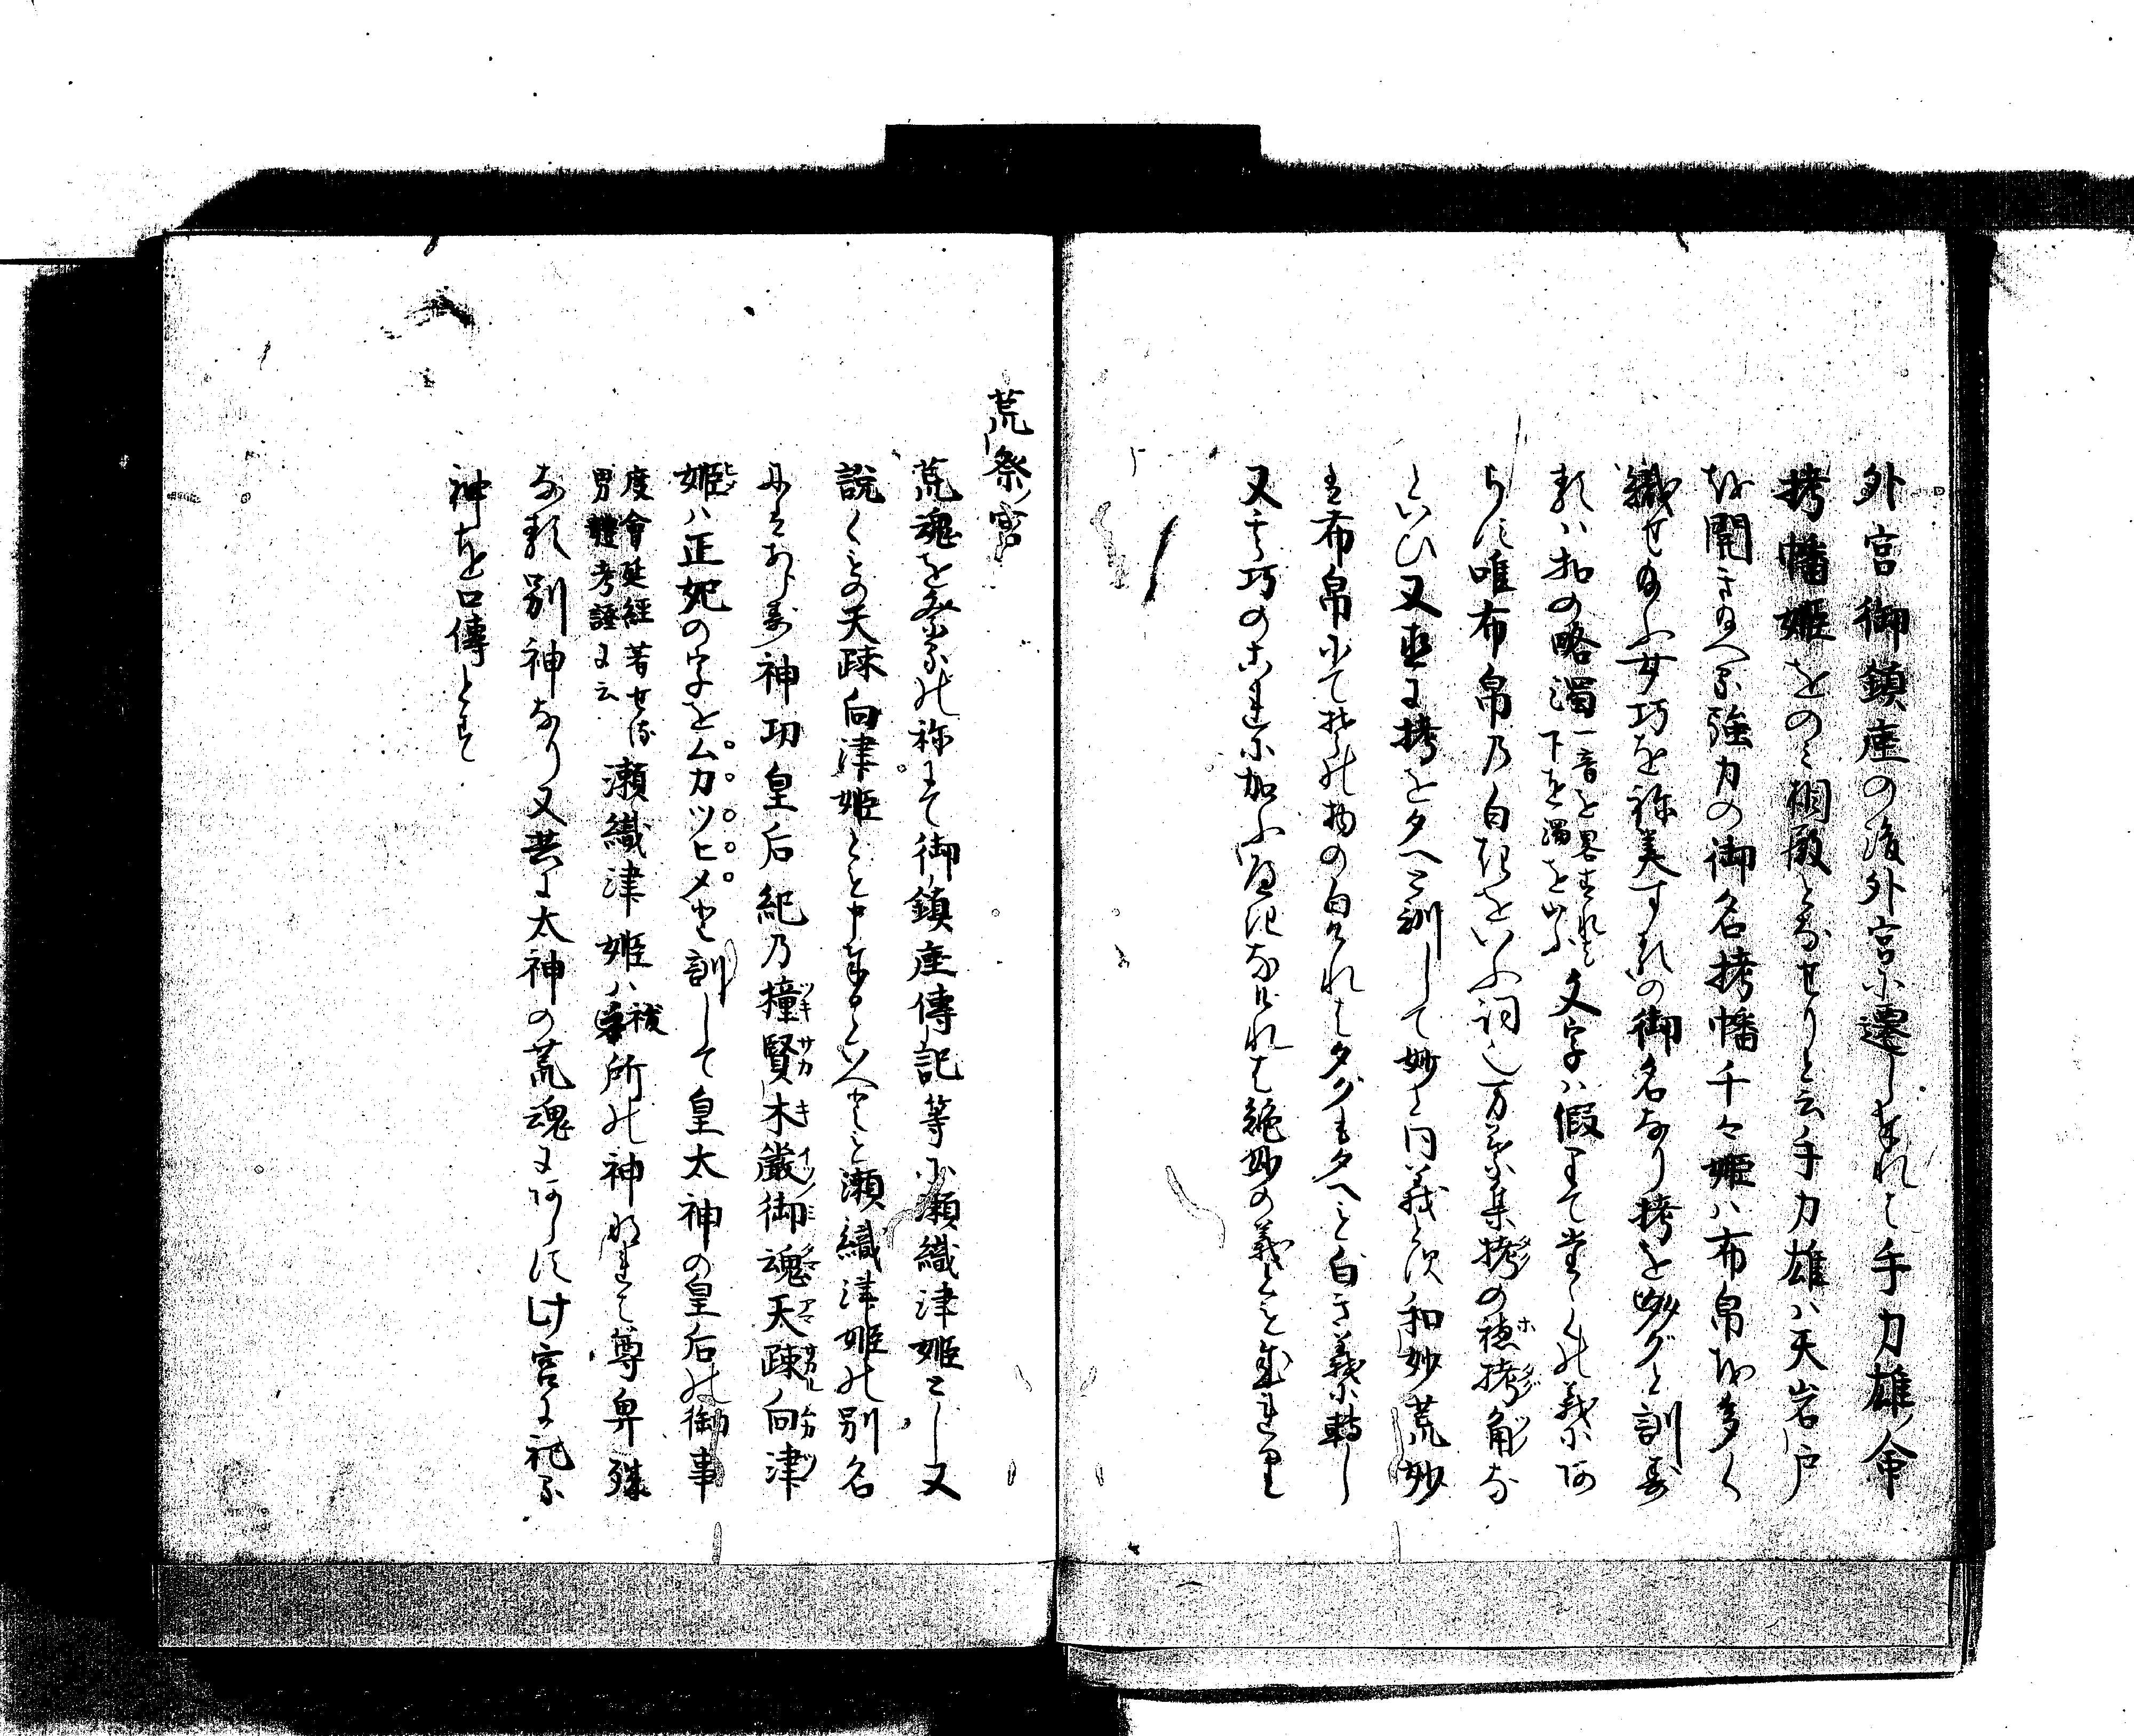 外宮御鎮座の後外宮に遷し奉れは手力雄ノ命
拷幡姫をのミ相殿となせりと云手力雄ハ天岩戸
を開き給へる強力の御名拷幡千々姫ハ布帛を多く
織せ給ふ女巧を称美するの御名なり拷を妙グと訓る
類ハ加の略濁一音を略すれは下を濁を いふ文字ハ假りて書くの義にあ
らす唯布帛乃白きをいふ詞也万葉集拷の穂拷角な
といひ又直に拷をタヘと訓して妙と同義とす和妙荒妙
は布帛にて其物の白けれはタグもタヘも白き義に轉し
又其巧のこれに加ふへきなけれは絶妙の義ともなれり
荒祭ノ宮
荒魂を祭るの称にて御鎮座傳記等に瀬織津姫とし又
説くもの天疎向津姫とも申奉るといへとも瀬織津姫の別名
にはあらす神功皇后紀乃撞賢木嚴御魂天疎向津
姫ハ正妃の字をムカツヒメと訓して皇太神の皇后の御事
度會延經著せる
男體考證に云
瀬織津姫ハ祓所の神なれは尊卑殊
なる別神なり又共に太神の荒魂にあらす此宮に祀る
神を口傳とす